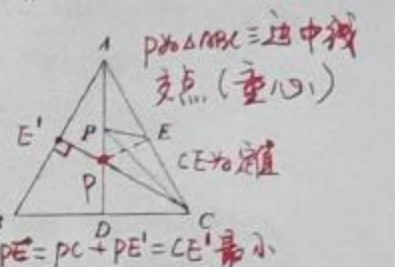 A
P为△ABC三边中线
交点(重心)
E'
P
E
CE为定值
P
D
C
PE=PC+PE'=CE'最小